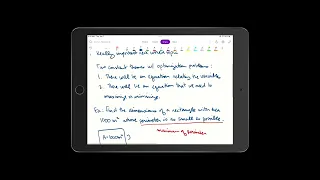 Really important idea within topic
Two constant themes of optimization problems:
1. There will be an equation relating the variables
2. There will be an equation that we need to maximize or minimize.
Ex: Find the dimensions of a rectangle with area
1000 m² whose perimeter is as small as possible.
A=1000m²
minimum of perimeter